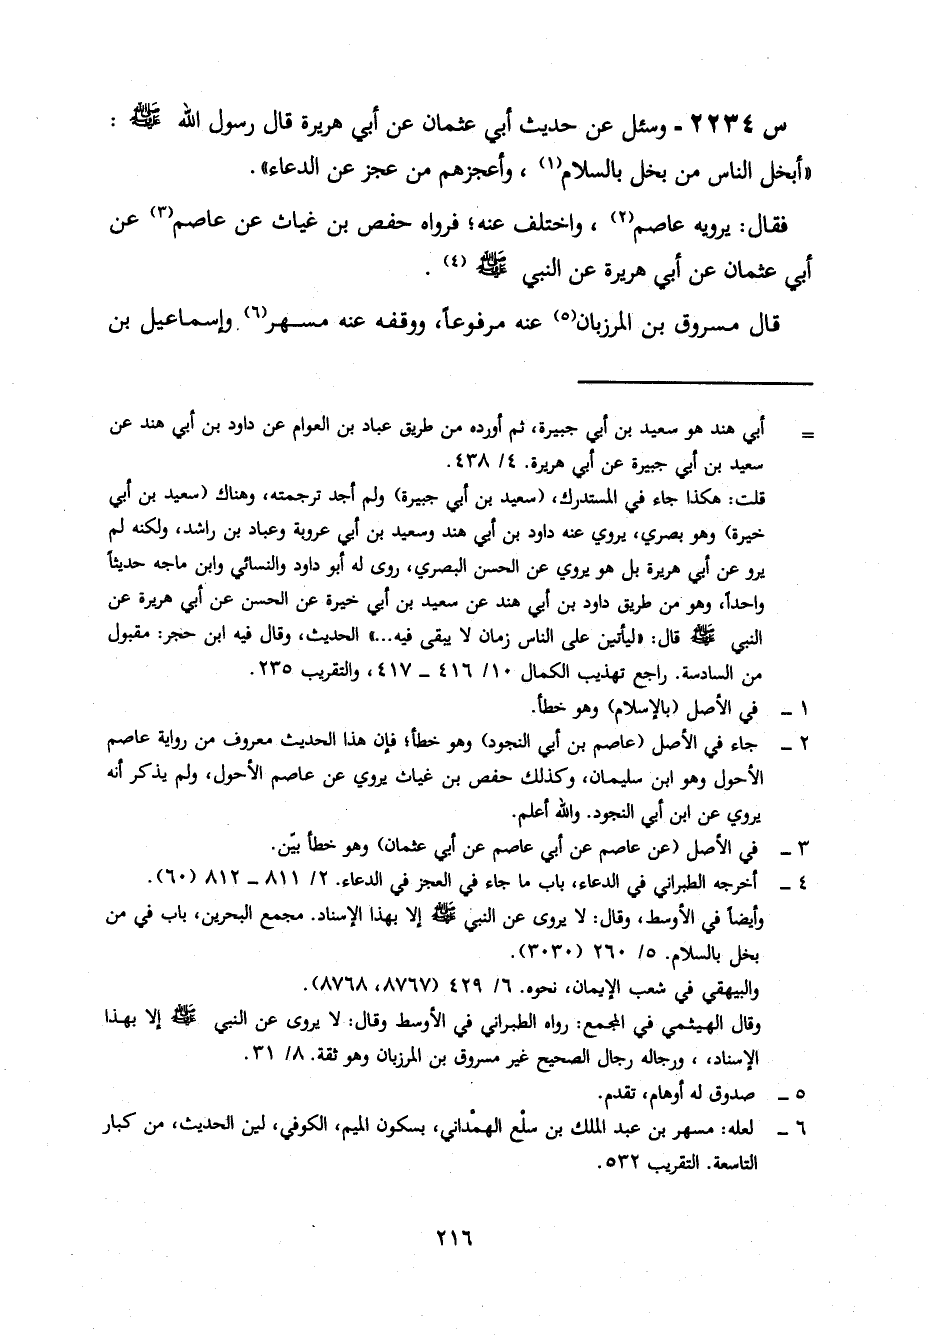 س ٢٢٣٤ - وسئل عن حديث أبي عثمان عن أبي هريرة قال رسول الله ﷺ :
«أبخل الناس من بخل بالسلام(١) ، وأعجزهم من عجز عن الدعاء».
فقال: يرويه عاصم(٢) ، واختلف عنه؛ فرواه حفص بن غياث عن عاصم(٣) عن
أبي عثمان عن أبي هريرة عن النبي ﷺ (٤) .
قال مسروق بن المرزبان(٥) عنه مرفوعاً، ووقفه عنه مسهر(٦) وإسماعيل بن
= أبي هند هو سعيد بن أبي جبيرة، ثم أورده من طريق عباد بن العوام عن داود بن أبي هند عن
سعيد بن أبي جبيرة عن أبي هريرة. ٤/ ٤٣٨.
قلت: هكذا جاء في المستدرك، (سعيد بن أبي جبيرة) ولم أجد ترجمته، وهناك (سعيد بن أبي
خيرة) وهو بصري، يروي عنه داود بن أبي هند وسعيد بن أبي عروبة وعباد بن راشد، ولكنه لم
يرو عن أبي هريرة بل هو يروي عن الحسن البصري، روى له أبو داود والنسائي وابن ماجه حديثاً
واحداً، وهو من طريق داود بن أبي هند عن سعيد بن أبي خيرة عن الحسن عن أبي هريرة عن
النبي ﷺ قال: «ليأتين على الناس زمان لا يبقى فيه...» الحديث، وقال فيه ابن حجر: مقبول
من السادسة. راجع تهذيب الكمال ١٠/ ٤١٦ ــ ٤١٧، والتقريب ٢٣٥.
١ ــ في الأصل (بالإسلام) وهو خطأ.
٢ ــ جاء في الأصل (عاصم بن أبي النجود) وهو خطأ؛ فإن هذا الحديث معروف من رواية عاصم
الأحول وهو ابن سليمان، وكذلك حفص بن غياث يروي عن عاصم الأحول، ولم يذكر أنه
يروي عن ابن أبي النجود. والله أعلم.
٣ ــ في الأصل (عن عاصم عن أبي عاصم عن أبي عثمان) وهو خطأ بيّن.
٤ ــ أخرجه الطبراني في الدعاء، باب ما جاء في العجز في الدعاء. ٢/ ٨١١ ــ ٨١٢ (٦٠).
وأيضاً في الأوسط، وقال: لا يروى عن النبي ﷺ إلا بهذا الإسناد. مجمع البحرين، باب في من
بخل بالسلام. ٥/ ٢٦٠ (٣٠٣٠).
والبيهقي في شعب الإيمان، نحوه. ٦/ ٤٢٩ (٨٧٦٧، ٨٧٦٨).
وقال الهيثمي في المجمع: رواه الطبراني في الأوسط وقال: لا يروى عن النبي ﷺ إلا بهذا
الإسناد، ، ورجاله رجال الصحيح غير مسروق بن المرزبان وهو ثقة. ٨/ ٣١.
٥ ــ صدوق له أوهام، تقدم.
٦ ــ لعله: مسهر بن عبد الملك بن سلْع الهمْداني، بسكون الميم، الكوفي، لين الحديث، من كبار
التاسعة. التقريب ٥٣٢.
٢١٦